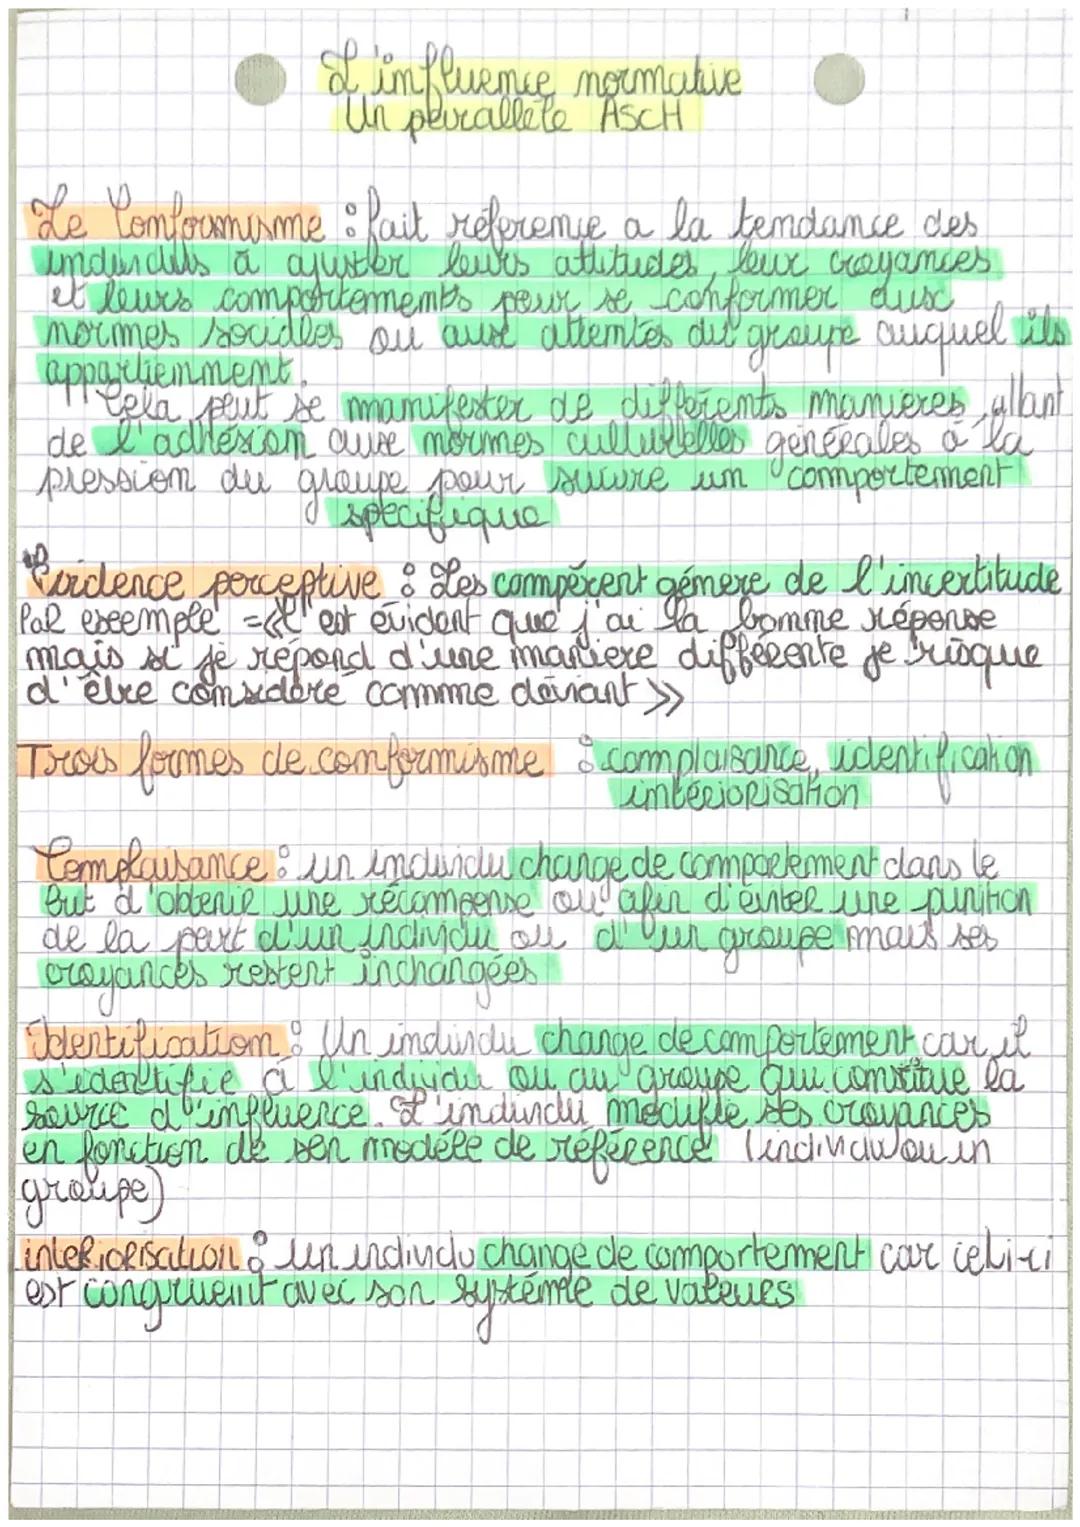 L'influence normative
Un parallèle ASCH
Le Conformisme : fait référence a la tendance des
individus à ajuster leurs attitudes, leur croyances
et leurs comportements pour se conformer aux
normes sociales ou aux attentes du groupe auquel ils
appartiennent.
Cela peut se manifester de différents manières, allant
de l'adhésion aux normes culturelles générales à la
pression du groupe pour suivre un comportement
spécifique
Evidence perceptive : Les compèrent génère de l'incertitude
Par exemple = «C'est évident que j'ai la bonne réponse
mais si je répond d'une manière différente je risque
d'être considéré comme déviant »
Trois formes de conformisme : complaisance, identification
intériorisation
Complaisance : un individu change de comportement dans le
But d'obtenir une récompense ou afin d'éviter une punition
de la part d'un individu ou d'un groupe mais ses
croyances restent inchangées
Identification : Un individu change de comportement car il
s'identifie à l'individu ou au groupe qui constitue la
source d'influence. L'individu modifie ses croyances
en fonction de son modèle de référence (individu ou un
groupe)
interiorisation : un individu change de comportement car celui-ci
est congruent avec son système de valeurs